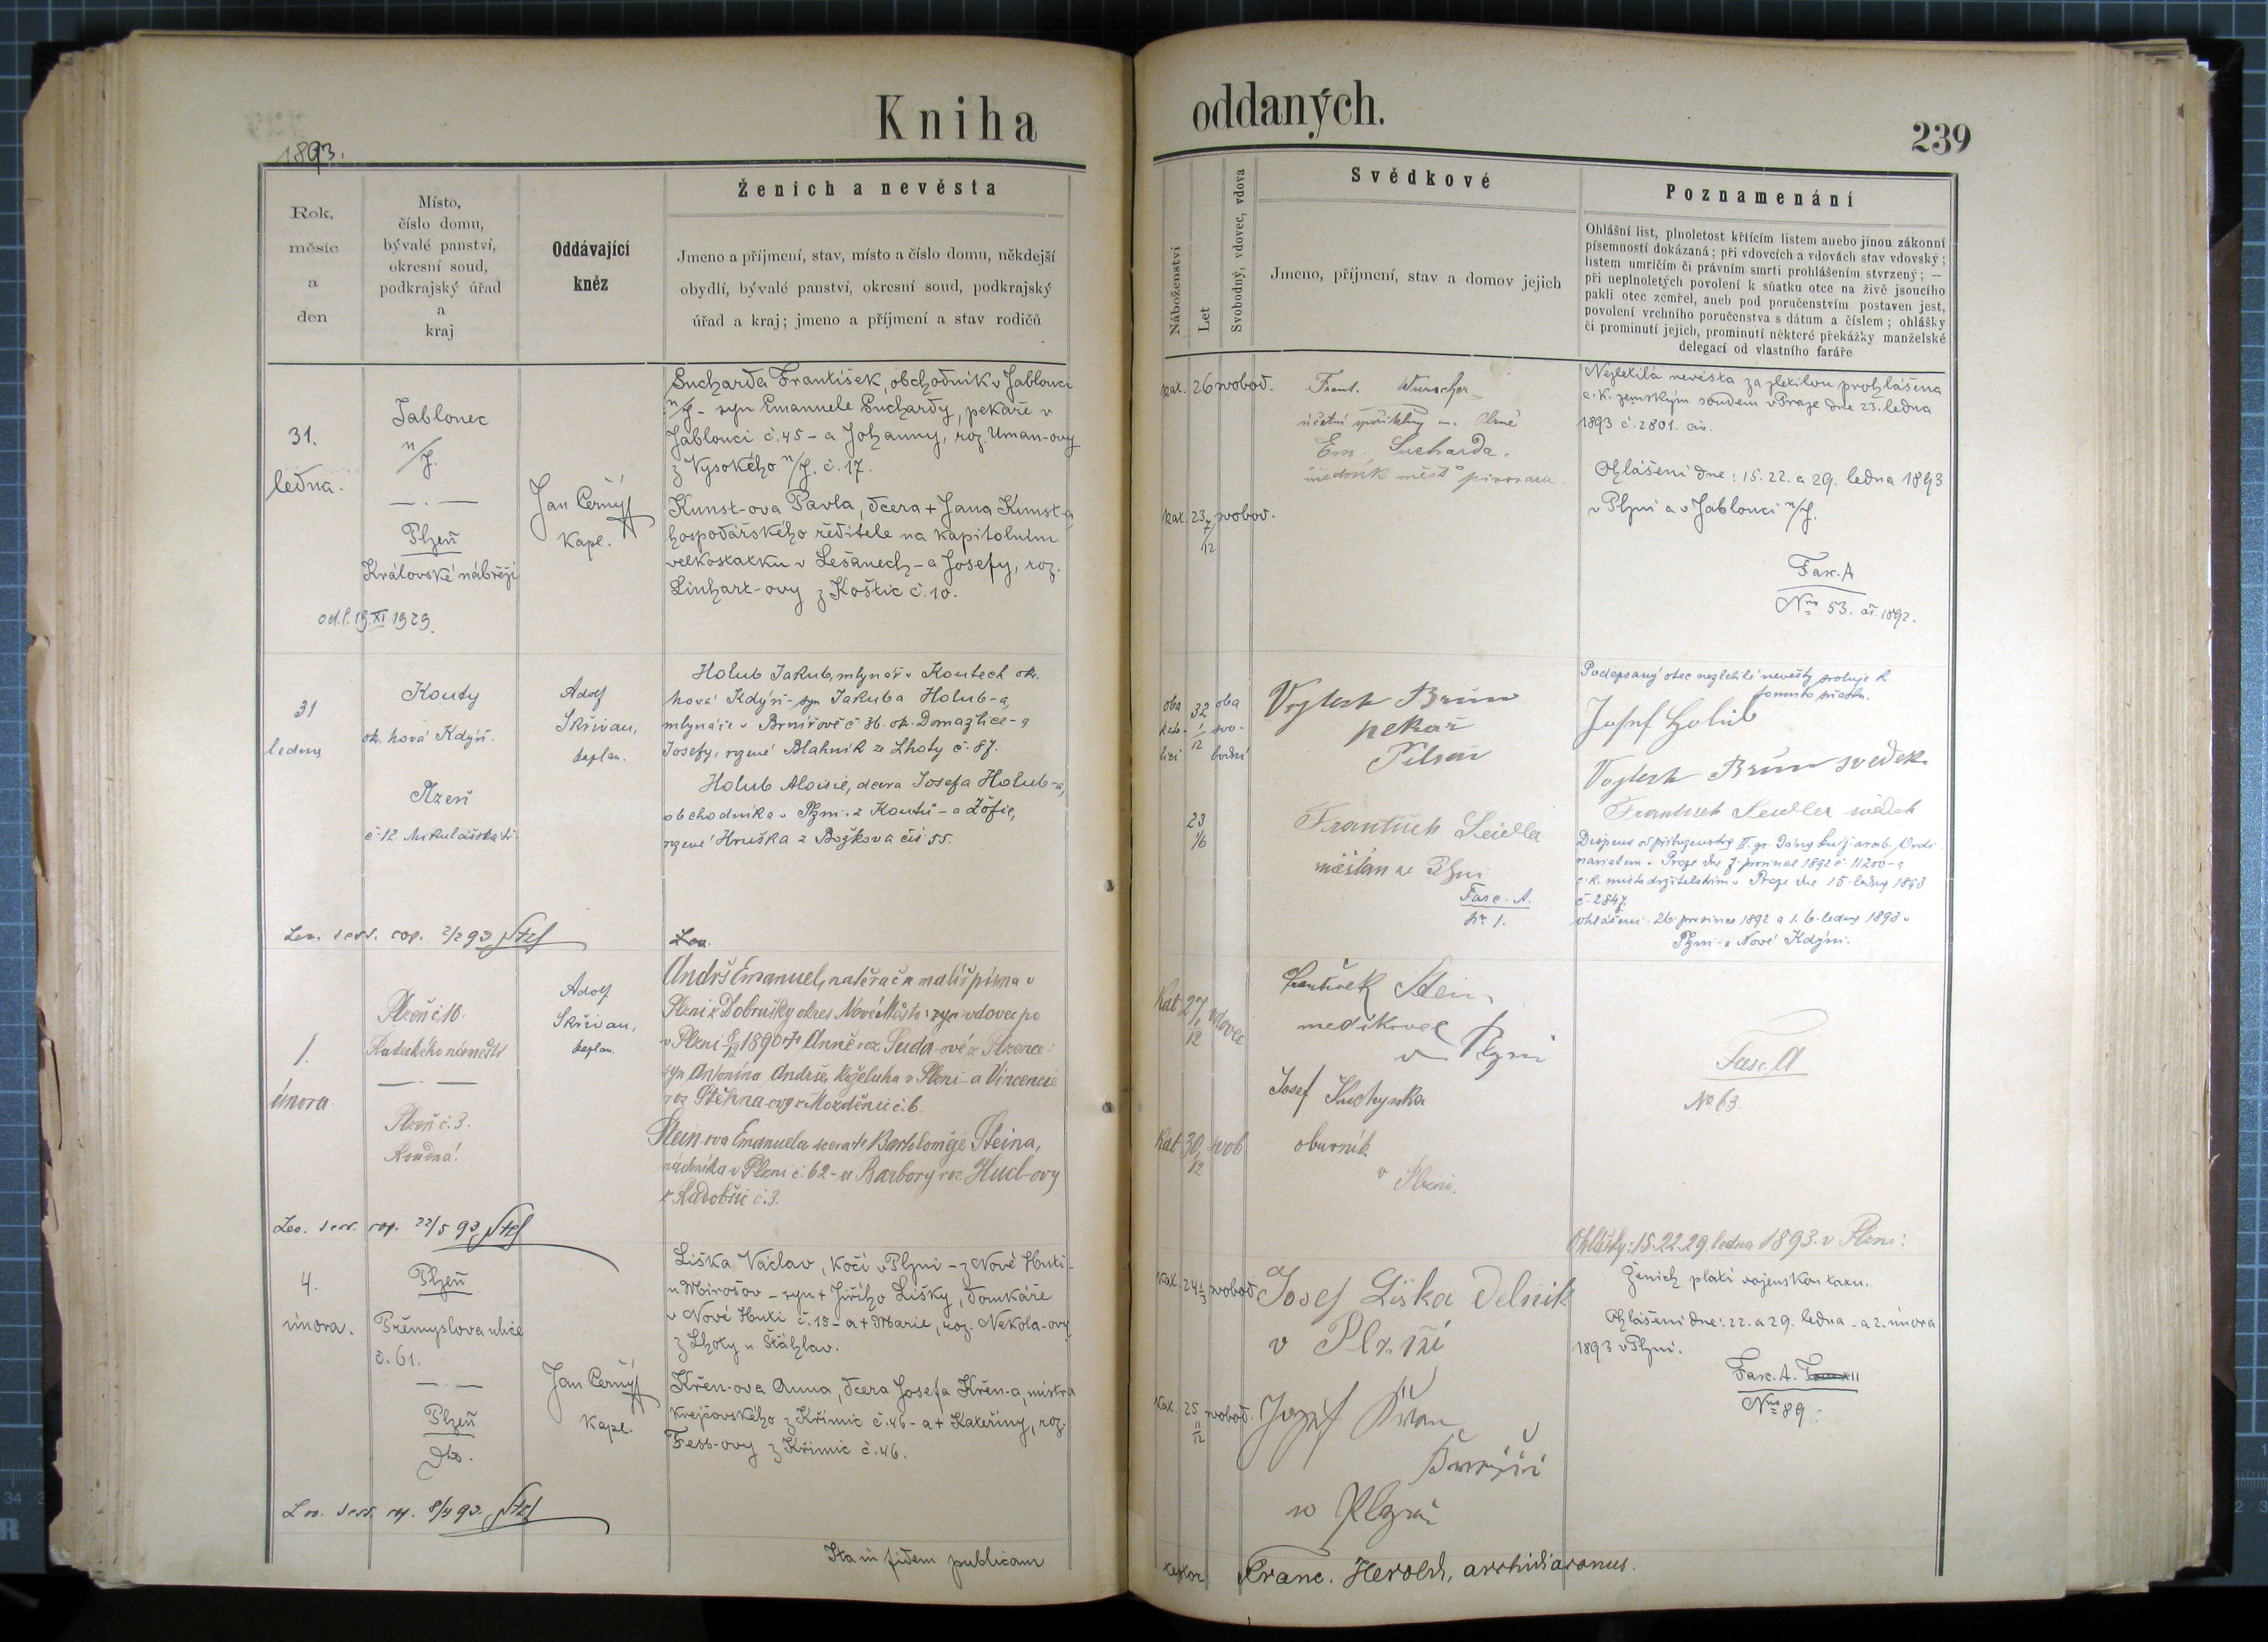 Kniha
oddaných.
239
1893.
Rok,
měsíc
a
den
Místo,
číslo domu,
bývalé panství,
okresní soud,
podkrajský úřad
a
kraj
Oddávající
kněz
Ženich a nevěsta
Jmeno a příjmení, stav, místo a číslo domu, někdejší
obydlí, bývalé panství, okresní soud, podkrajský
úřad a kraj; jmeno a příjmení a stav rodičů
Náboženství
Let
Svobodný, vdovec, vdova
Svědkové
Jmeno, příjmení, stav a domov jejich
Poznamenání
Ohlášní list, plnoletost křticím listem anebo jinou zákonní
písemností dokázaná; při vdovcích a vdovách stav vdovský;
listem umrlčím či právním smrti prohlášením stvrzený; —
při neplnoletých povolení k sňatku otce na živě jsoucího
pakli otec zemřel, aneb pod poručenstvím postaven jest,
povolení vrchního poručenstva s dátum a číslem; ohlášky
či prominutí jejich, prominutí některé překážky manželské
delegací od vlastního faráře
31.
ledna.
Jablonec
n/J.
Plzeň
Královské nábřeží
od.l. 19.XI 1929.
Jan Černý
Kapl.
Sucharda František, obchodník v Jablonci
n/J - syn Emanuele Suchardy, pekaře v
Jablonci č.45 - a Johanny, roz. Uman-ovy
z Vysokého n/J. č. 17.
Kunst-ova Pavla, dcera + Jana Kunst-a
hospodářského ředitele na kapitolním
velkostatku v Lešanech - a Josefy, roz.
Linhart-ovy z Koštic č.10.
kat. 26 svobod.
kat. 23 7/12 svobod.
Frant. Wunscher
účetní spořitelny m. Plzně
Em. Sucharda,
úředník měšť. pivovaru.
Nezletilá nevěsta za zletilou prohlášena
c.k. zemským soudem v Praze dne 23. ledna
1893 č. 2801. civ.
Ohlášeni dne: 15. 22. a 29. ledna 1893
v Plzni a v Jablonci n/J.
Fasc. A
Nro 53. 1892.
31
ledna
Kouty
ok. Nová Kdýň.
Plzeň
č 12 Mikulášská tř.
Adolf
Skřivan,
kaplan.
Holub Jakub, mlynář v Koutech ok.
Nová Kdýň - syn Jakuba Holub-a,
mlynáře v Brnířově č 36. ok. Domažlice - a
Josefy, rozené Blahník ze Lhoty č. 87.
Holub Aloisie, dcera Josefa Holub-a,
obchodníka v Plzni z Koutů - a Žofie,
rozené Hruška z Božkova čís 55.
oba 32 oba
kato- 1/12 svo-
lici bodní
23
1/6
Vojtech Brůn
pekař
Pilsen
František Seidler
měšťan ve Plzni
Fasc. A.
Nr 1.
Podepsaný otec nezletilé nevěsty svoluje k
tomuto sňatku.
Josef Holub
Vojtech Brůn svedek
František Seidler svědek
Dispens od příbuzenství II. gr. dány kníž. arcib. Ordi-
nariatem v Praze dne 7. prosince 1892 č. 11200 - a
c.k. místodržitelstvím v Praze dne 15. ledna 1893
č. 2847.
ohlášeni: 26. prosince 1892 a 1. 6. ledna 1893 v
Plzni - a Nové Kdýni.
Leo. serv. cop. 2/2 93
Leo.
1.
února.
Plzeň č 10.
Radeckého náměstí
Plzeň č. 3.
Roudná.
Adolf
Skřivan,
kaplan.
Andrš Emanuel, natěrač a malíř písma v
Plzni z Dobrušky okres Nové Město: vdovec po
v Plzni 8/12 1890 + Anně roz Suda-ové z Plzence:
syn Antonína Andrše, koželuha v Plzni - a Vincencie
roz Štěhna-ovy z Mozděnic č. 6.
Stein-ova Emanuela dcera + Bartoloměje Steina,
nádeníka v Plzni č. 62 - a Barbory roz. Hucl-ovy
z Radobčic č. 3.
Kat 27 1/12 vdovec
Kat 30 1/12 svob
František Stein
medikovec
v Plzni
Josef Kuchynka
obuvník
v Plzni.
Fasc. A
No 63.
Ohlášky: 15. 22. 29. ledna 1893. v Plzni:
Leo. serv. cop. 22/5 93
4.
února.
Plzeň
Přemyslova ulice
č. 61.
Plzeň
dto.
Jan Černý
Kapl.
Liška Václav, kočí v Plzni - z Nové Huti -
u Mirošov - syn + Jiřího Lišky, domkáře
v Nové Huti č. 15 - a + Marie, roz. Nekola-ovy
z Lhoty u Šťáhlav.
Křen-ova Anna, dcera Josefa Křen-a, mistra
krejčovského z Křimic č. 46 - a + Kateřiny, roz.
Fess-ovy z Křimic č. 46.
kat. 24 1/3 svobod
kat. 25 11/12 svobod.
Josef Liška Delník
v Plzni
Jozef
w Plzni
Ženich platí vojenskou taxu.
Ohlášeni dne: 22. a 29. ledna - a 2. února
1893 v Plzni.
Fasc. A.
Nro 89.
Leo. serv. cop. 8/4 93.
Ita in fidem publicam
Franc. Herold, archidiaconus.